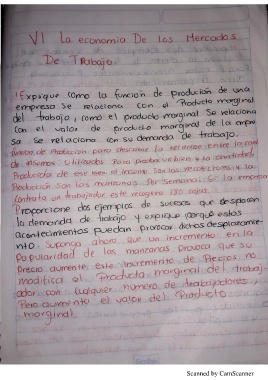 VI La economia De los Mercados
De Trabajo.
1 Explique como la función de producción de una
empresa se relaciona con el Producto marginal
del trabajo, como el producto marginal se relaciona
con el valor de producto marginal de la empre
sa se relaciona con su demanda de trabajo.
función de Producción para describir la relación entre la cant
de insumos utilizados Para producir bien y la cantidad
Producida de ese bien el insumo son los recolectores y la
Producción son las manzanas Por Semana. Si la empresa
contrata un trabajador este recogera 130 cajas.
Proporcione dos ejemplos de sucesos que desplacen
la demanda de trabajo y explique porqué estos
acontecimientos puedan provocar dichos desplazamien-
to. Suponga ahora que un incremento en la
Popularidad de las manzanas provoca que su
Precio aumente este incremento de Precios no
modifica el Producto marginal del trabaj-
ador con cualquier número de trabajadores,
Pero aumenta el valor del Producto
marginal.
Scanned by CamScanner